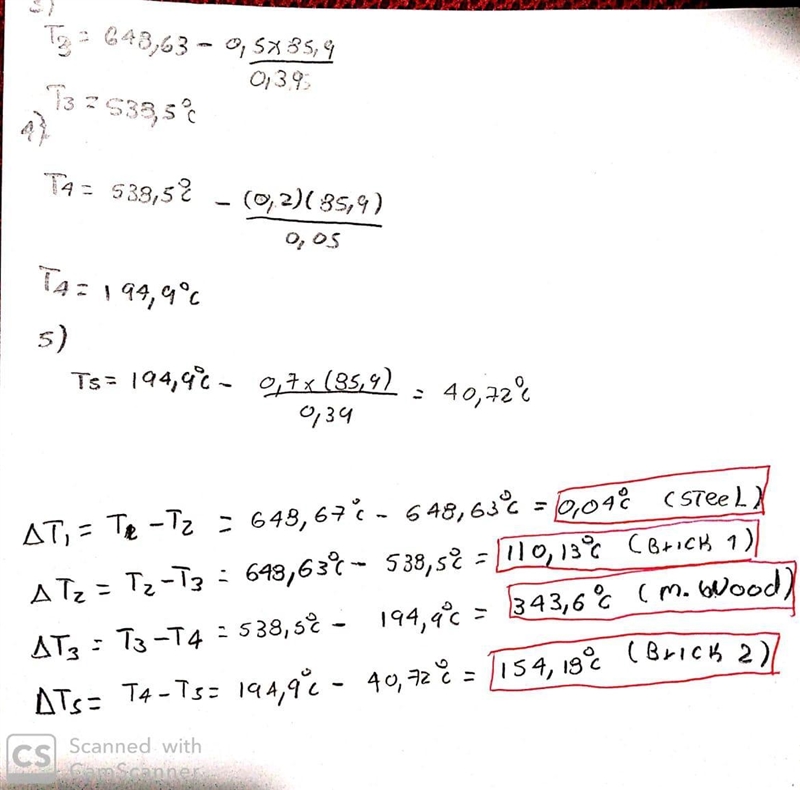 3)
T3 = 648,63 - 0,5x85,9
0,39
T3 = 538,5°C
4)
T4 = 538,5°C - (0,2)(85,9)
0,05
T4 = 194,9°C
5)
T5 = 194,9°C - 0,7x(85,9) = 40,72°C
0,39
ΔT1 = T1 - T2 = 648,67°C - 648,63°C = 0,04°C (STeeL)
ΔT2 = T2 - T3 = 648,63°C - 538,5°C = 110,13°C (Brick 1)
ΔT3 = T3 - T4 = 538,5°C - 194,9°C = 343,6°C (m. Wood)
ΔT5 = T4 - T5 = 194,9°C - 40,72°C = 154,18°C (Brick 2)
CS Scanned with
CamScanner